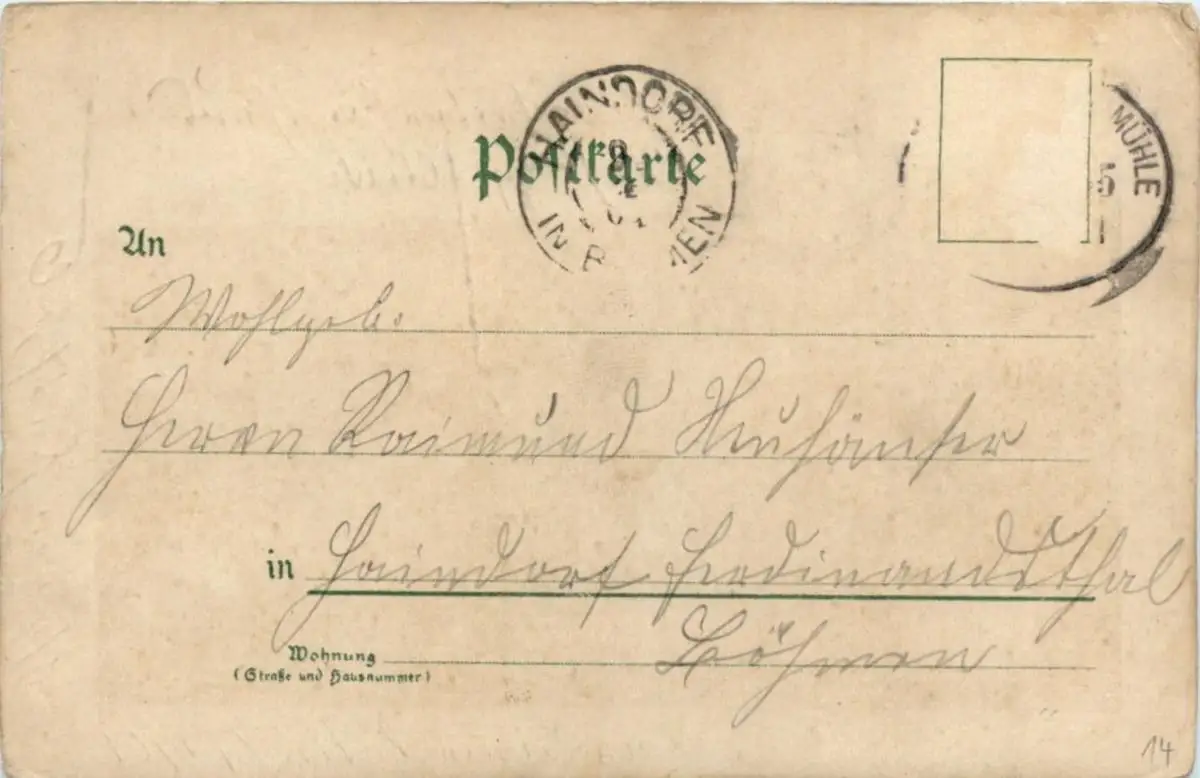 Postkarte
HAINDORF
IN B MEN
MÜHLE
5
An
Wohlgeb.
Herrn Raimund Neuhäuser
in Haindorf Ferdinandsthal
Böhmen
Wohnung
(Straße und Hausnummer)
14